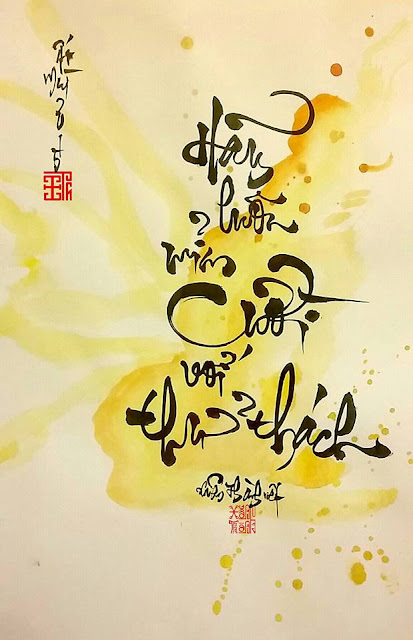 Hãy
luôn
mỉm
Cười
với
thử thách